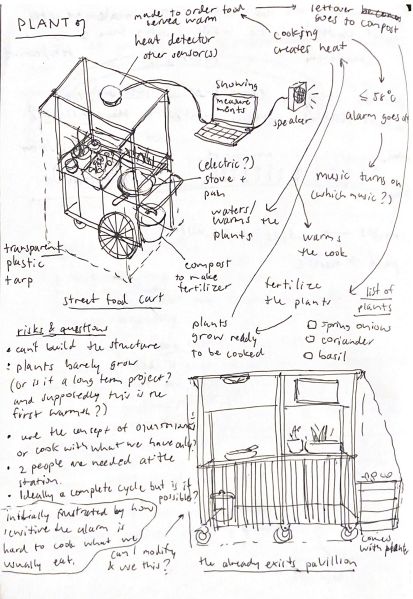 PLANT
made to order food
served warm
leftover
goes to compost
heat detector
other sensor(s)
cooking
creates heat
showing
measure
ments
speaker
≤ 58°C
alarm goes
(electric?)
stove +
pan
music turns on
(which music?)
waters/
warms the
plants
warms
the cook
transparent
plastic
tarp
compost
to make
fertilizer
street food cart
fertilize
the plants
list of
plants
□ spring onions
□ coriander
□ basil
plants
grow ready
to be cooked
risks & questions
• can't build the structure
• plants barely grow
(or is it a long term project?
and supposedly this is the
first warmed?)
• use the concept of
or cook with what we have only?
• 2 people are needed at the
station.
• Ideally a complete cycle but is it
possible?
frustrated by how
sensitive the alarm is
hard to cook what we
usually eat.
can I modify
& use this?
the already exists pavillion
comes
with plants